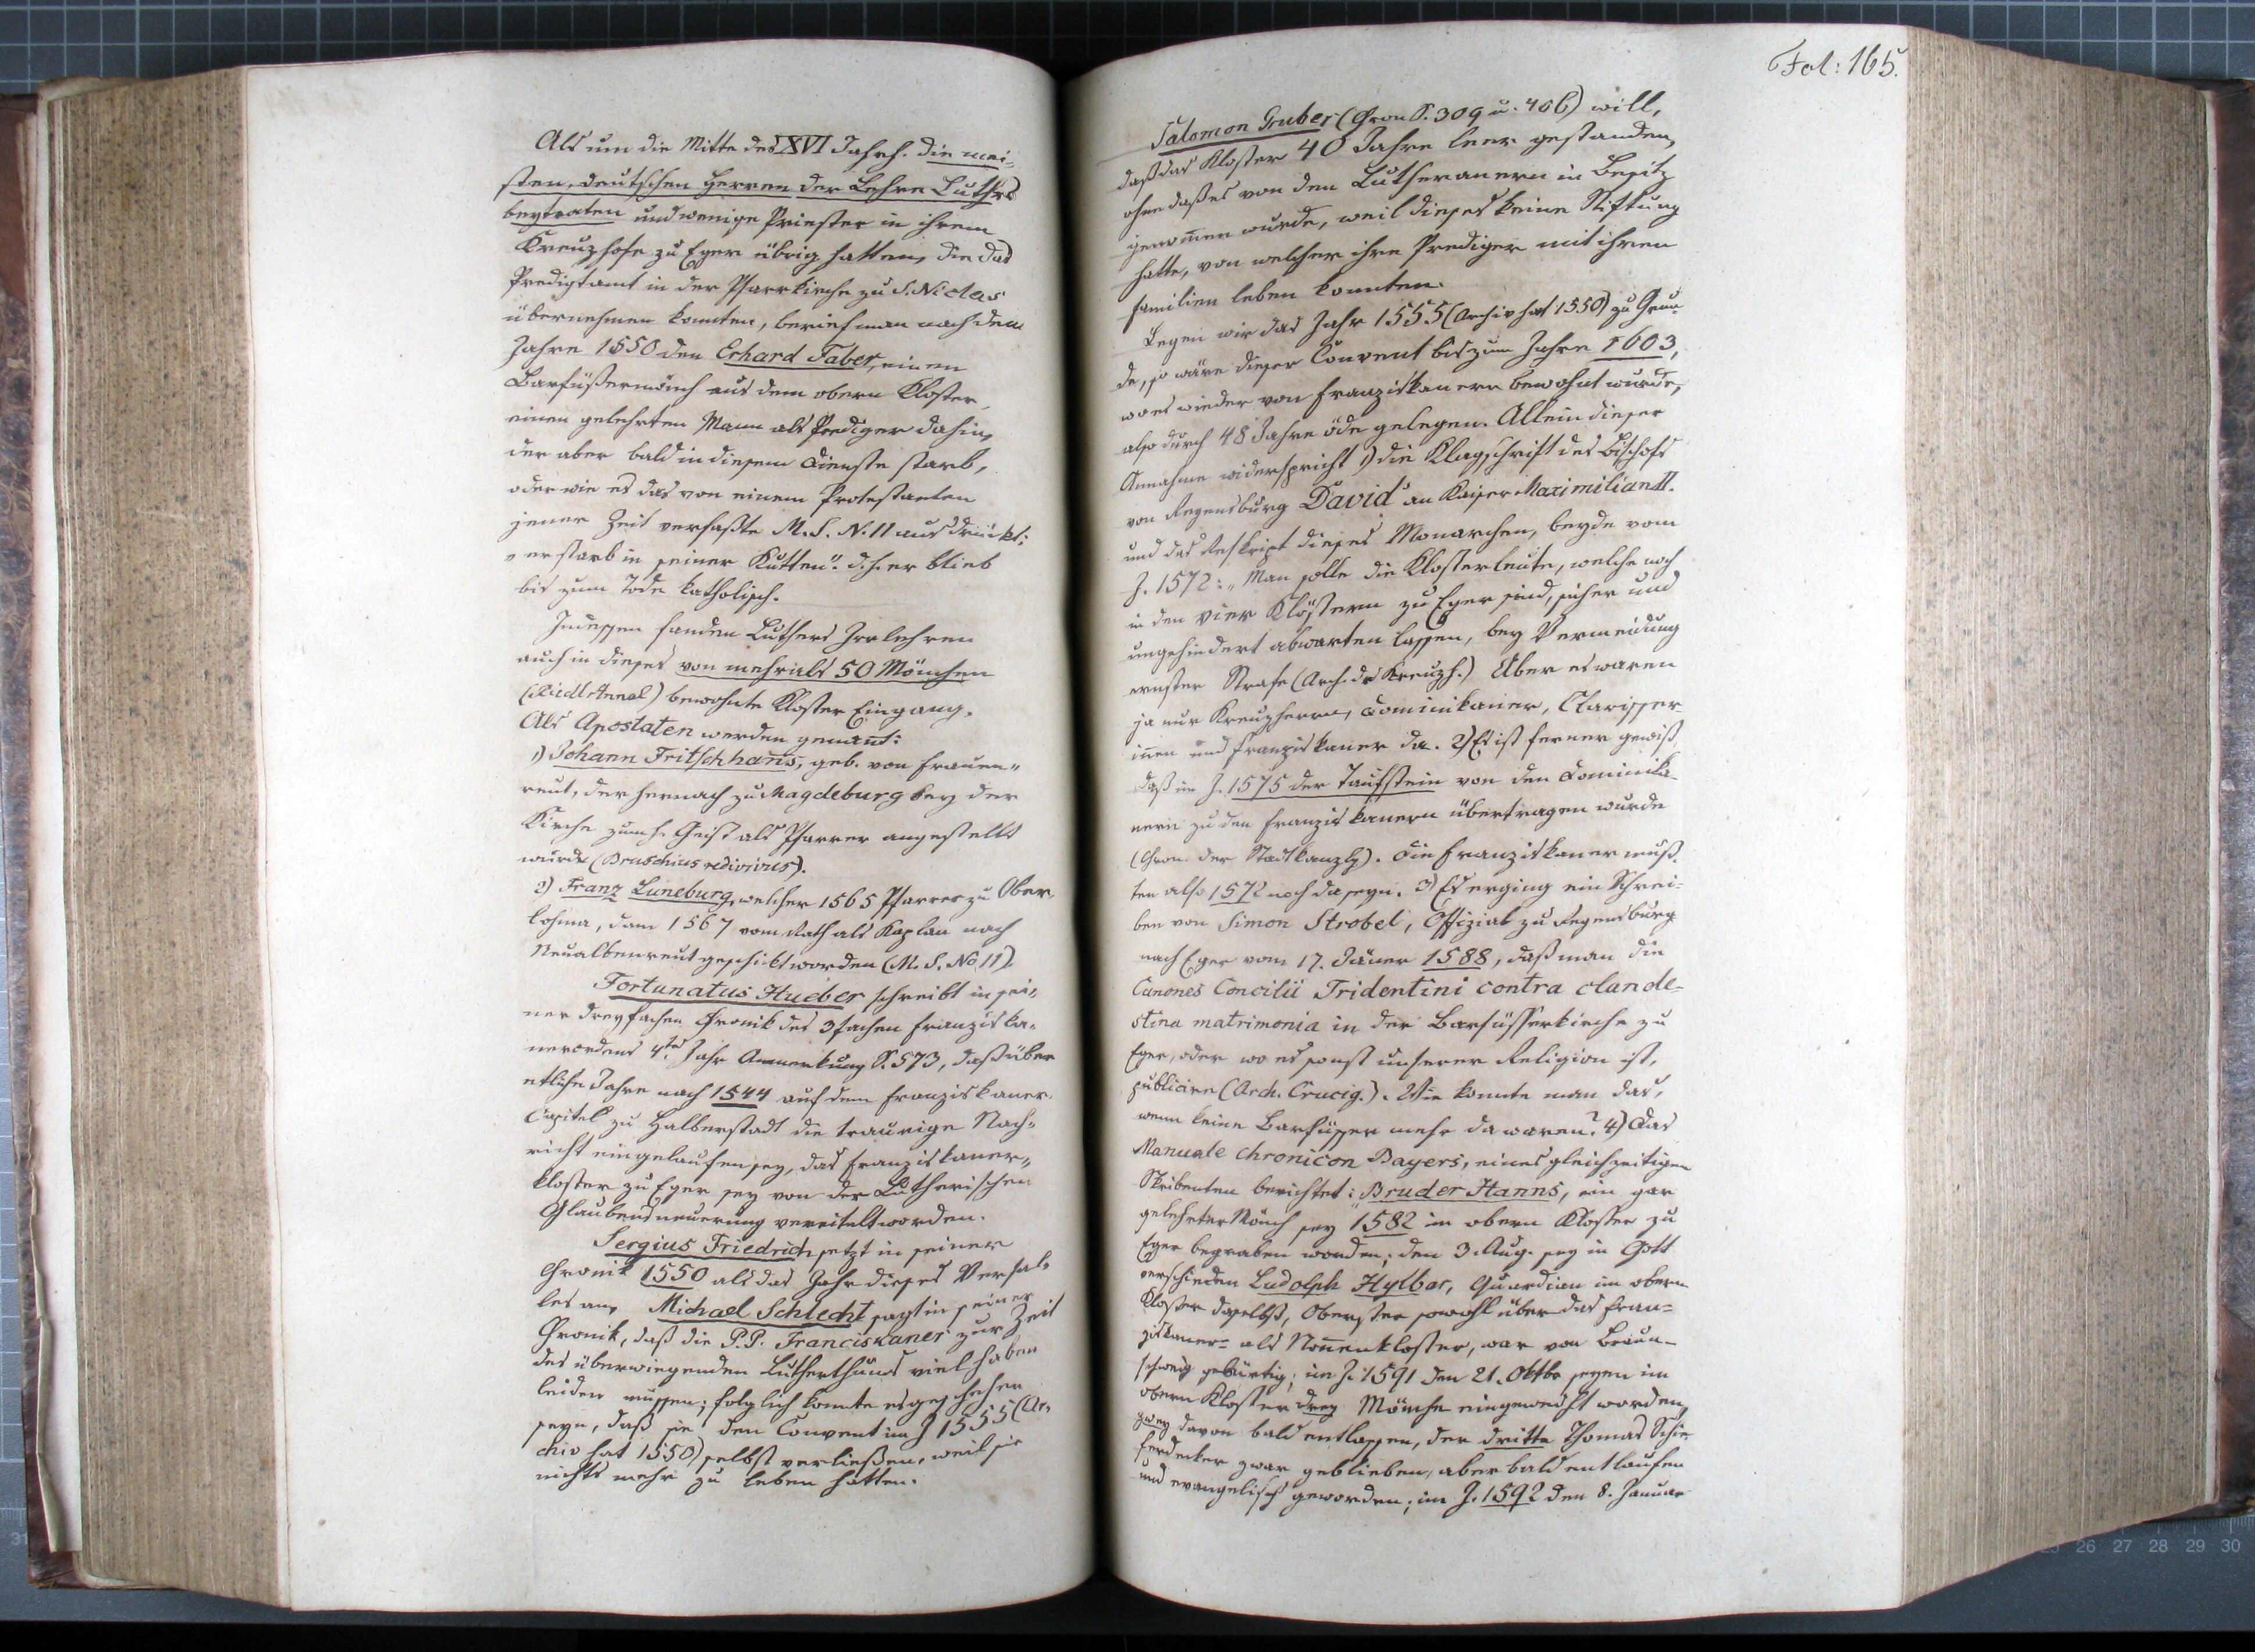 Als um die Mitte des XVI Jahrh. die mei-
sten deutschen Herren der Lehre Luthrs
beytraten und wenige Priester in ihrem
Kreuzhofe zu Eger übrig hatten, die das
Predigtamt in der Pfarrkirche zu S. Niclas
übernehmen konnten, berief man nach dem
Jahre 1550 den Erhard Faber, einen
Barfüßermönch aus dem obern Kloster,
einen gelehrten Mann als Prediger dahin,
der aber bald in diesem Dienste starb,
oder wie es das von einem Protestanten
jener Zeit verfaßte M.S. N. 11 ausdrückt:
„er starb in seiner Kutten". d.h. er blieb
bis zum Tode katholisch.
Indessen fanden Luthers Irrlehren
auch in dieses von mehr als 50 Mönchen
(Riedl Annal) bewohnte Kloster Eingang.
Als Apostaten werden genant:
1) Johann Fritschhans, geb. von Frauen-
reut, der hernach zu Magdeburg bey der
Kirche zum h. Geist als Pfarrer angestellt
wurde (Bruschius redivivus).
2) Franz Luneburg, welcher 1565 Pfarrer zu Ober-
lohma, dann 1567 vom Rath als Kaplan nach
Neualbenreut geschikt worden (M. S. No 11)
Fortunatus Hueber schreibt in sei-
ner dreyfachen Chronik des 3fachen Franziska-
nerordens 4tes Jahr Anmerkung S. 573, daß über
etliche Jahre nach 1544 auf dem Franziskaner
Capitel zu Halberstadt die traurige Nach-
richt eingelaufen sey, das Franziskaner-
kloster zu Eger sey von der Lutherischen
Glaubensneuerung vereitelt worden.
Sergius Friedrich setzt in seiner
Chronik 1550 als das Jahr dieses Verfal-
les an, Michael Schlecht sagt in seiner
Chronik, daß die P.P. Franciskaner zur Zeit
des überwiegenden Lutherthums viel haben
leiden müssen; folglich konnte es geschehen
seyn, daß sie den Convent im J 1555 (Ar-
chiv hat 1550) selbst verließen, weil sie
nichts mehr zu leben hatten.
Fol: 165.
Salomon Gruber (Chron S. 309 u. 406) will,
daß das Kloster 40 Jahre leer gestanden,
ohne daß es von den Lutheranern in Besitz
genommen wurde, weil dieses keine Stiftung
hatte, von welcher ihre Prediger mit ihren
Familien leben konnten.
Legen wir das Jahr 1555 (Archiv hat 1550) zu Grun-
de, so wäre dieser Convent bis zum Jahre 1603,
wo es wieder von Franziskanern bewohnt wurde,
also durch 48 Jahre öde gelegen. Allein dieser
Annahme widerspricht 1) die Klagschrift des Bischofs
von Regensburg David an Kaiser Maximilian II.
und das Reskript dieses Monarchen, beyde vom
J. 1572: „Man solle die Klosterleute, welche noch
in den vier Klöstern zu Eger sind, sicher und
ungehindert abwarten lassen, bey Vermeidung
ernster Strafe (Arch. dr Kreuzh.) Aber es waren
ja nur Kreuzherrn, Dominikaner, Clarisser-
innen und Franziskaner da. 2) Es ist ferner gewiß,
daß im J. 1575 der Taufstein von den Dominika-
nern zu den Franziskanern übertragen wurde
(Chron. der Stadtkanzly). Die Franziskaner muß-
ten also 1572 noch da seyn. 3) Es erging ein Schrei-
ben von Simon Strobel, Offizial zu Regensburg
nach Eger vom 17. Jäner 1588, daß man die
Canones Concilii Tridentini contra clande-
stina matrimonia in der Barfüsserkirche zu
Eger, oder wo es sonst unserer Religion ist,
publicire (Arch. Crucig.). Wie konnte man das,
wenn keine Barfüsser mehr da waren? 4) Das
Manuale chronicon Bayers, eines gleichzeitigen
Skribenten berichtet: Bruder Hanns, ein gar
gelehrter Mönch sey 1582 im obern Kloster zu
Eger begraben worden; den 3. Aug. sey in Gott
verschieden Ludolph Hylbar, Quardian im obern
Kloster daselbst, Oberster sowohl über das Fran-
ziskaner- als Nonnenkloster, war von Braun-
schweig gebürtig; im J. 1591 den 21. Oktbr seyen im
obern Kloster drey Mönche eingeweiht worden,
zwey davon bald entlassen, der dritte Thomas Schie-
ferdecker zwar geblieben, aber bald entlaufen
und evangelisch geworden; im J. 1592 den 8. Januar